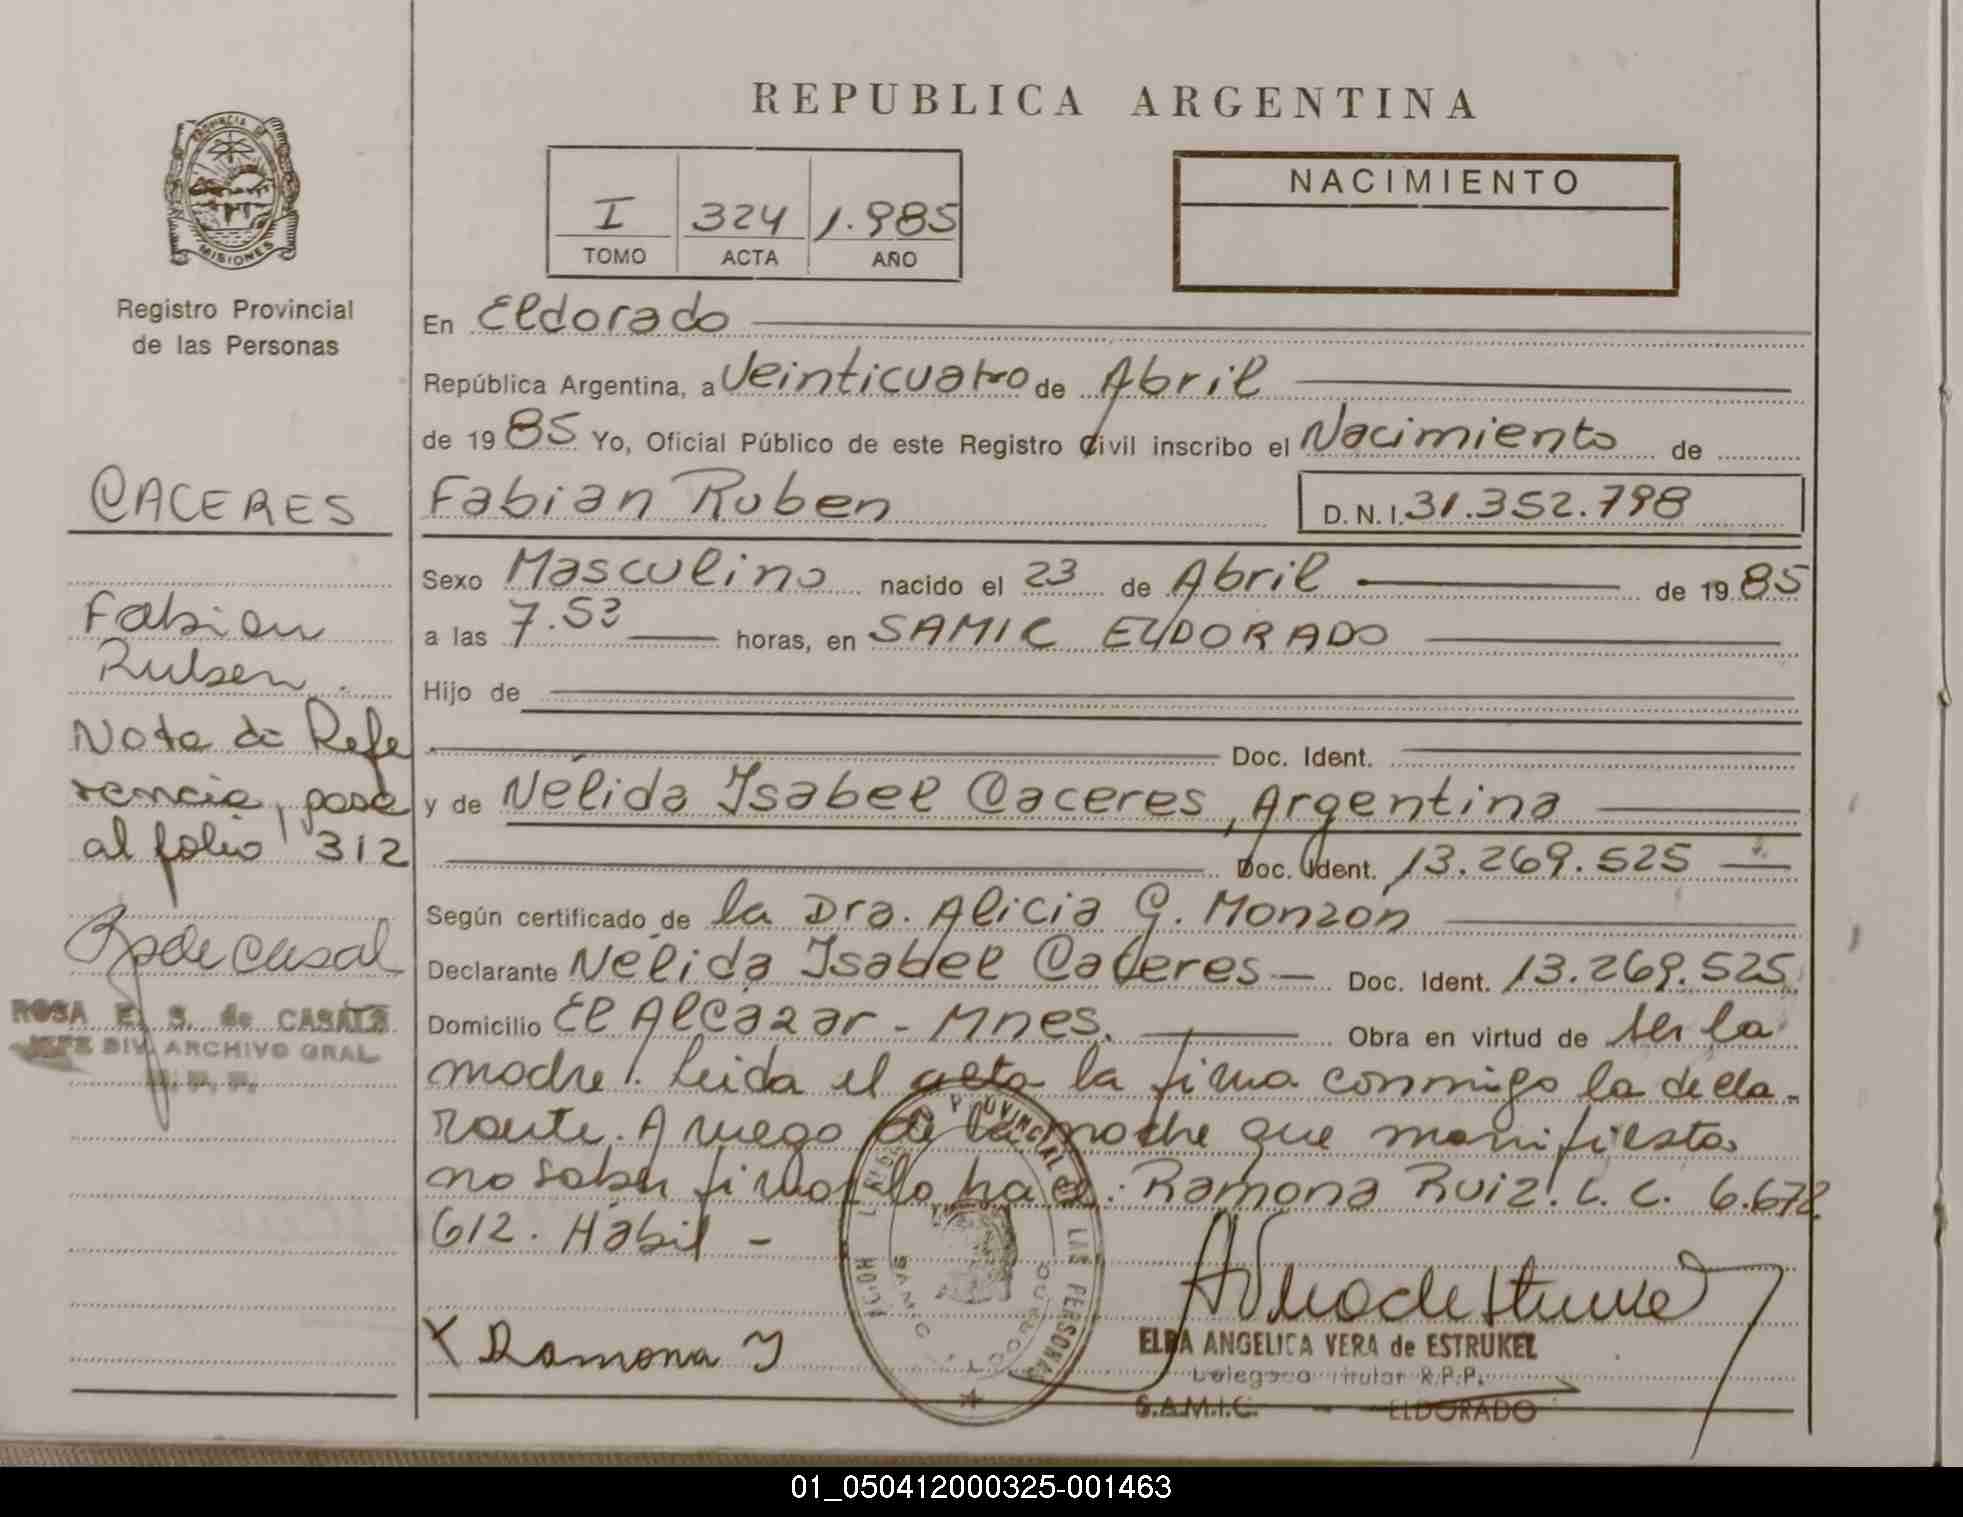 REPUBLICA ARGENTINA
PROVINCIA DE
MISIONES
Registro Provincial
de las Personas
I 324 1.985
TOMO ACTA AÑO
NACIMIENTO
En Eldorado
República Argentina, a Veinticuatro de Abril
de 1985 Yo, Oficial Público de este Registro Civil inscribo el Nacimiento de
Fabian Ruben D.N.I. 31.352.798
Sexo Masculino nacido el 23 de Abril de 1985
a las 7.53 horas, en SAMIC ELDORADO
Hijo de
Doc. Ident.
y de Nélida Isabel Caceres, Argentina
Doc. Ident. 13.269.525
Según certificado de la Dra. Alicia G. Monzón
Declarante Nélida Isabel Caceres Doc. Ident. 13.269.525
Domicilio El Alcázar - Mnes. Obra en virtud de ser la
madre. leida el acta la firma conmigo la decla-
rante. A ruego de la madre que manifiesta
no saber firmar lo hace: Ramona Ruiz. L. C. 6.672
612. Hábil -
X Ramona
ELBA ANGELICA VERA de ESTRUKEL
Delegada Titular R.P.P.
S.A.M.I.C. - ELDORADO
PROVINCIAL LAS PERSONAS
CACERES
Fabian
Ruben.
Nota de Refe
rencia, pasa
al folio 312
ROSA E. S. de CASALS
JEFE DIV. ARCHIVO GRAL.
01_050412000325-001463